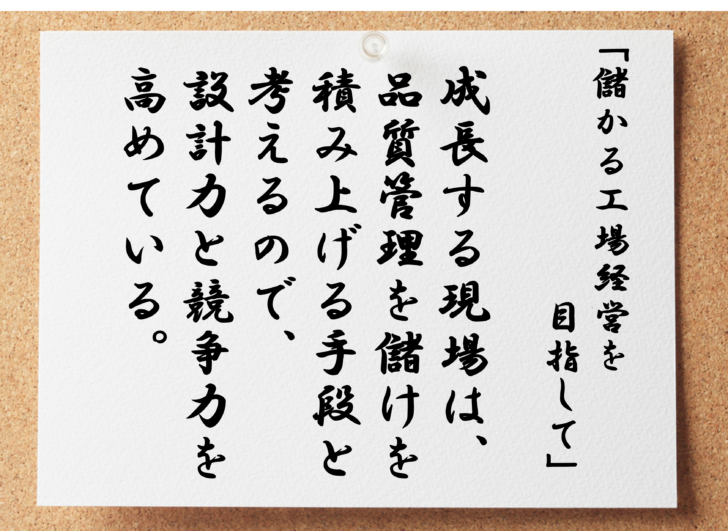 「儲かる工場経営を
目指して」
成長する現場は、
品質管理を儲けを
積み上げる手段と
考えるので、
設計力と競争力を
高めている。